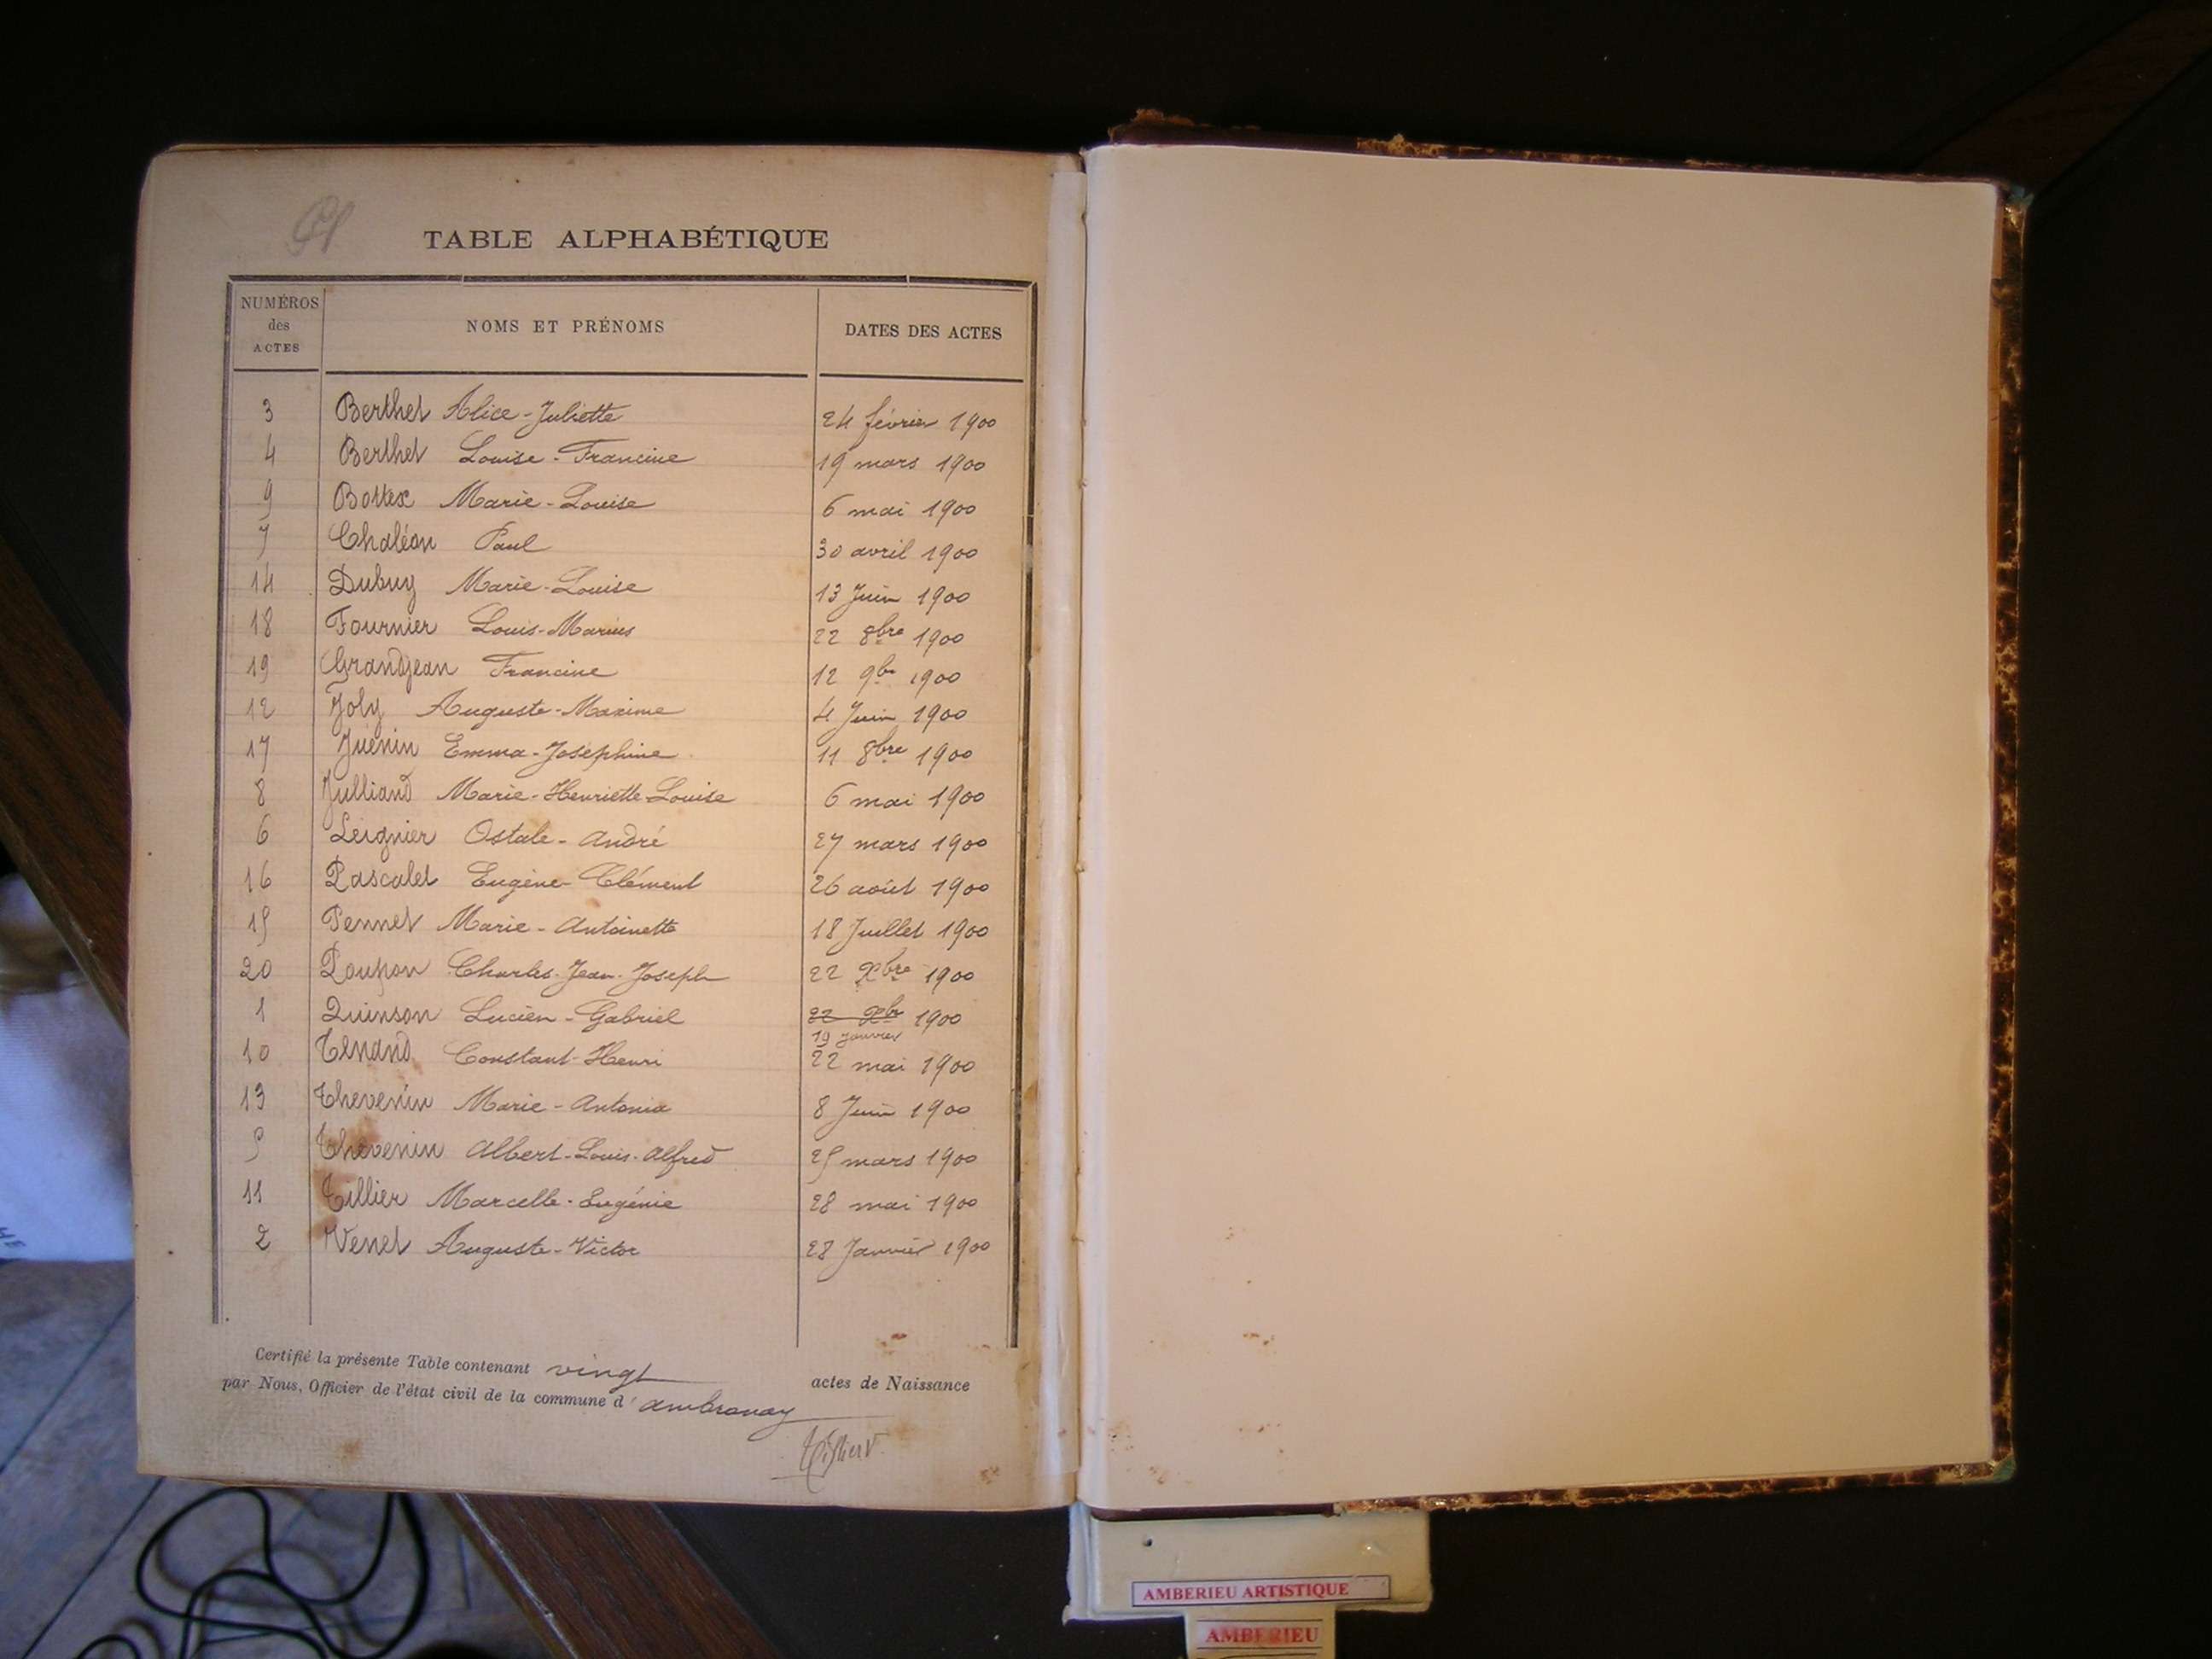 TABLE ALPHABÉTIQUE
NUMÉROS des ACTES NOMS ET PRÉNOMS DATES DES ACTES
3 Berthet Alice-Juliette 24 février 1900
4 Berthet Louise-Francine 19 mars 1900
9 Bottex Marie-Louise 6 mai 1900
7 Chaléon Paul 30 avril 1900
14 Dubuy Marie-Louise 13 Juin 1900
18 Fournier Louis-Marius 22 8bre 1900
19 Grandjean Francine 12 9bre 1900
12 Joly Auguste-Maxime 4 Juin 1900
17 Juénin Emma-Joséphine 11 8bre 1900
8 Julliand Marie-Henriette-Louise 6 mai 1900
6 Leignier Ostale-André 27 mars 1900
16 Pascalet Eugène-Clément 26 août 1900
15 Pennet Marie-Antoinette 18 Juillet 1900
20 Poupon Charles-Jean-Joseph 22 Xbre 1900
1 Quinson Lucien-Gabriel 22 Xbre 1900
19 Janvier
10 Tenand Constant-Henri 22 mai 1900
13 Thevenin Marie-Antonia 8 Juin 1900
5 Thevenin Albert-Louis-Alfred 25 mars 1900
11 Tillier Marcelle-Eugénie 28 mai 1900
2 Venet Auguste-Victor 28 Janvier 1900
Certifié la présente Table contenant vingt actes de Naissance
par Nous, Officier de l'état civil de la commune d'ambronay
AMBERIEU ARTISTIQUE
AMBERIEU